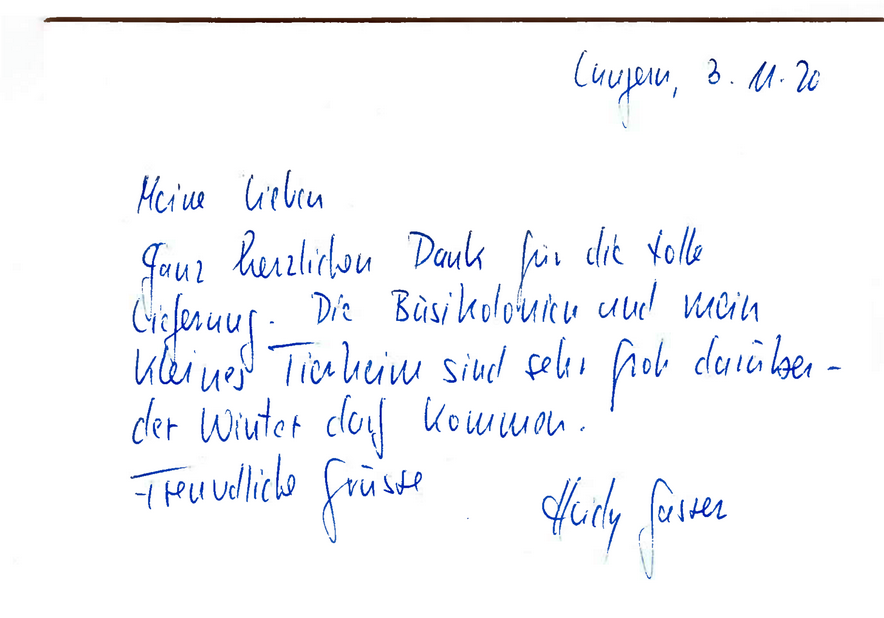 Lungern, 3. 11. 20
Meine Lieben
ganz herzlichen Dank für die tolle
Lieferung. Die Büsikolonien und mein
kleines Tierheim sind sehr froh darüber -
der Winter darf kommen.
Freundliche Grüsse
Heidy Gasser